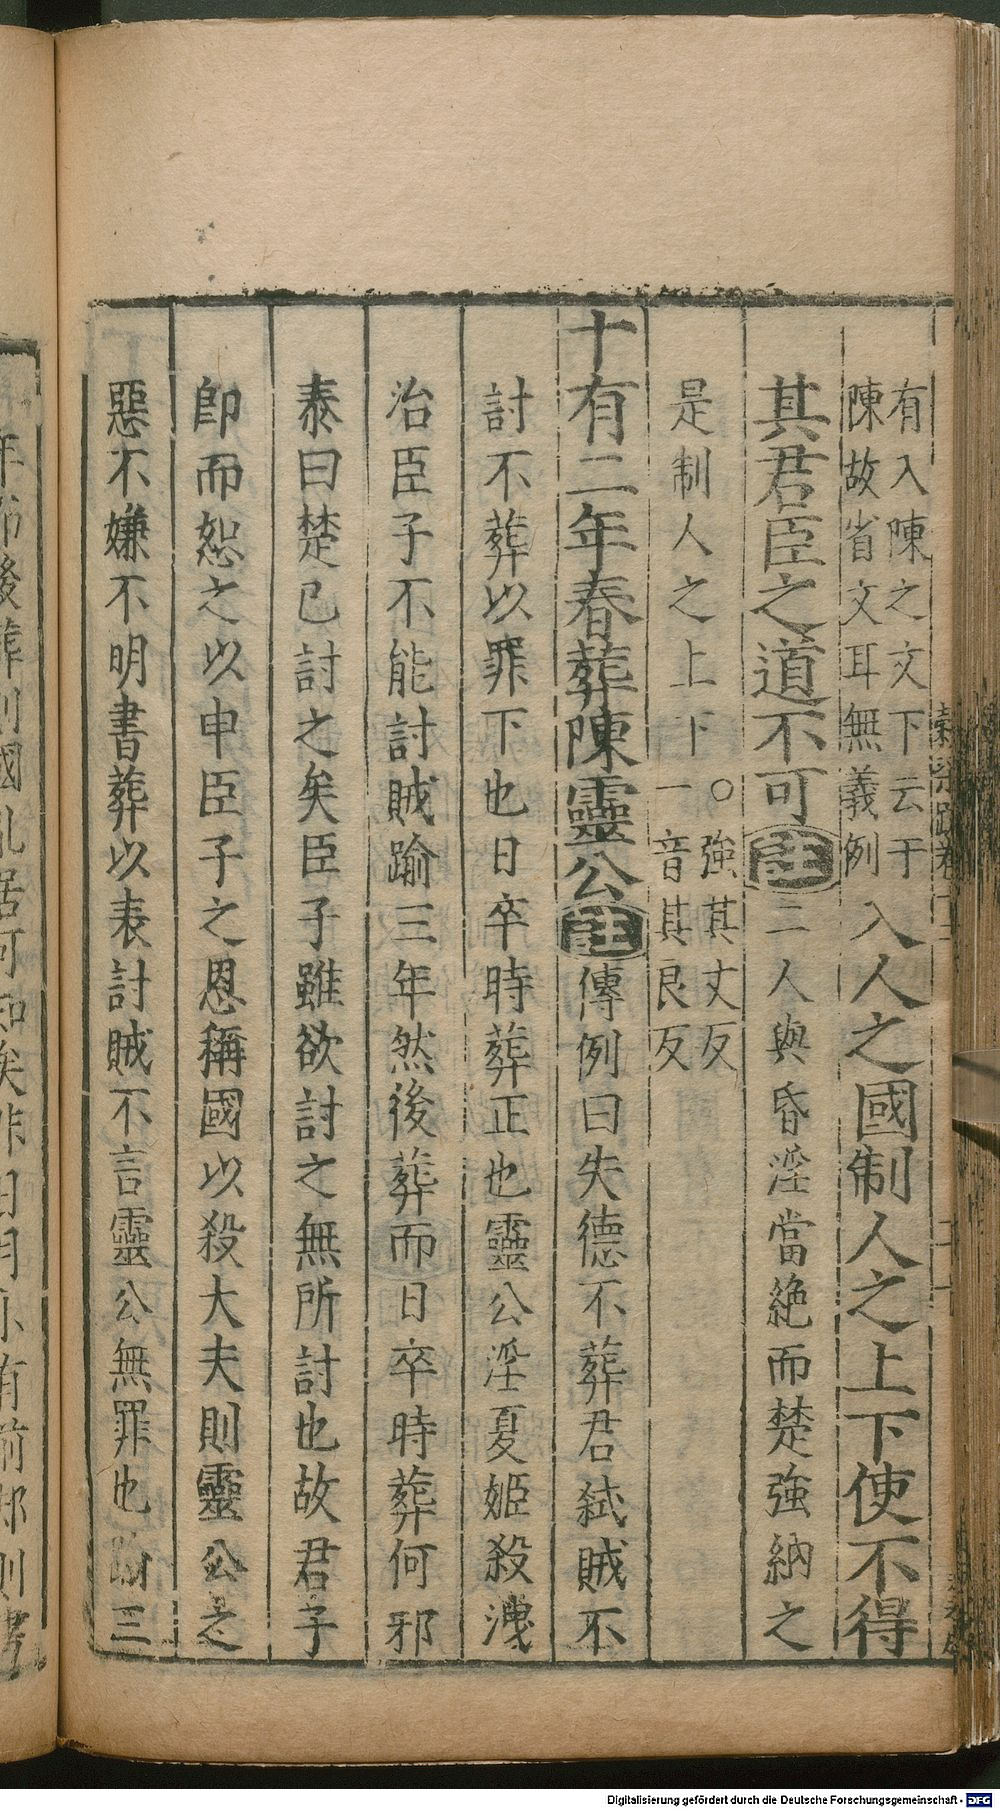 有入陳之文下云于
陳故省文耳無義例
入人之國制人之上下使不得
其君臣之道不可註二人與昏淫當絶而楚強納之
是制人之上下○強其丈反
一音其良反
十有二年春葬陳靈公註傳例曰失德不葬君弑賊不
討不葬以罪下也日卒時葬正也靈公淫夏姬殺洩
治臣子不能討賊踰三年然後葬而日卒時葬何邪
泰曰楚已討之矣臣子雖欲討之無所討也故君子
即而恕之以申臣子之恩稱國以殺大夫則靈公之
惡不嫌不明書葬以表討賊不言靈公無罪也踰三
Digitalisierung gefördert durch die Deutsche Forschungsgemeinschaft - DFG